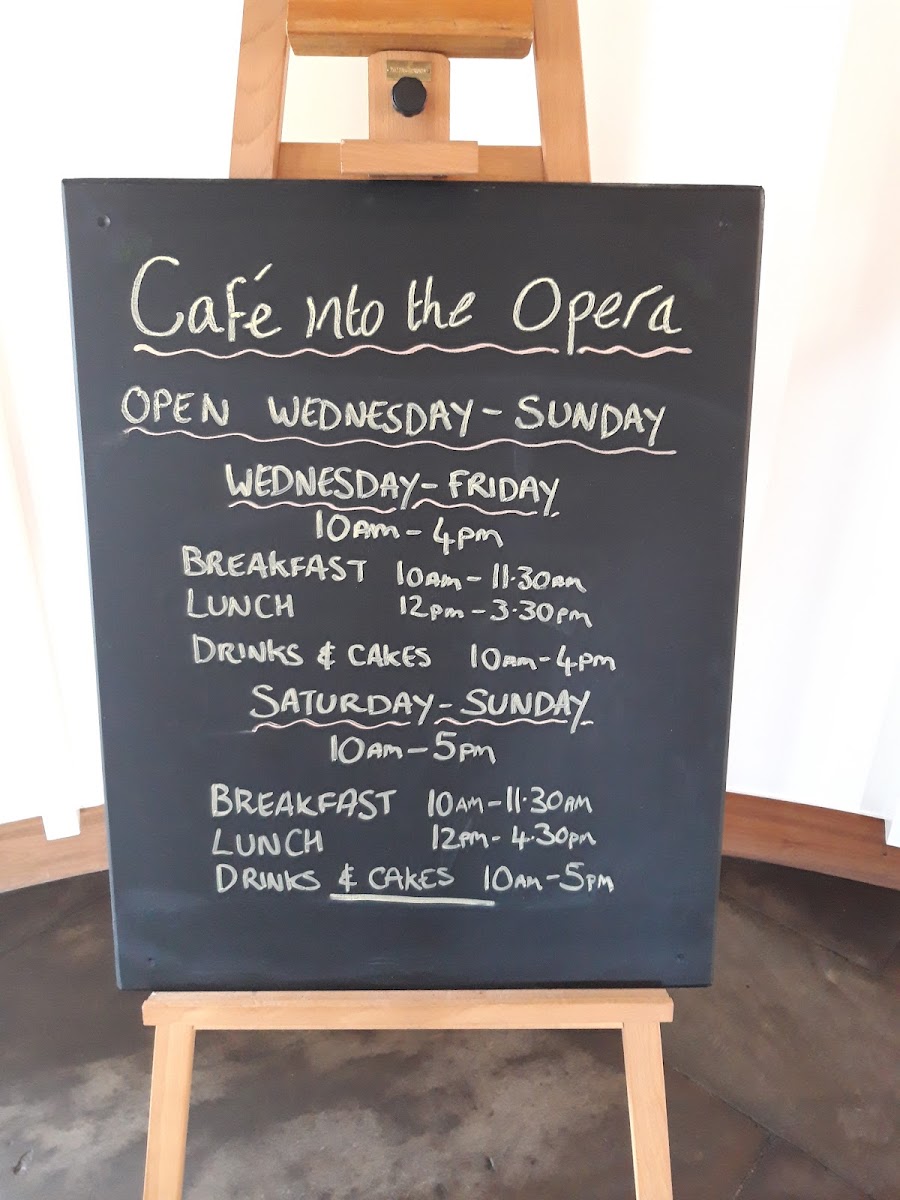 Café into the Opera
OPEN WEDNESDAY - SUNDAY
WEDNESDAY - FRIDAY
10am - 4pm
BREAKFAST 10am - 11.30am
LUNCH 12pm - 3.30pm
DRINKS & CAKES 10am - 4pm
SATURDAY - SUNDAY
10am - 5pm
BREAKFAST 10am - 11.30am
LUNCH 12pm - 4.30pm
DRINKS & CAKES 10am - 5pm